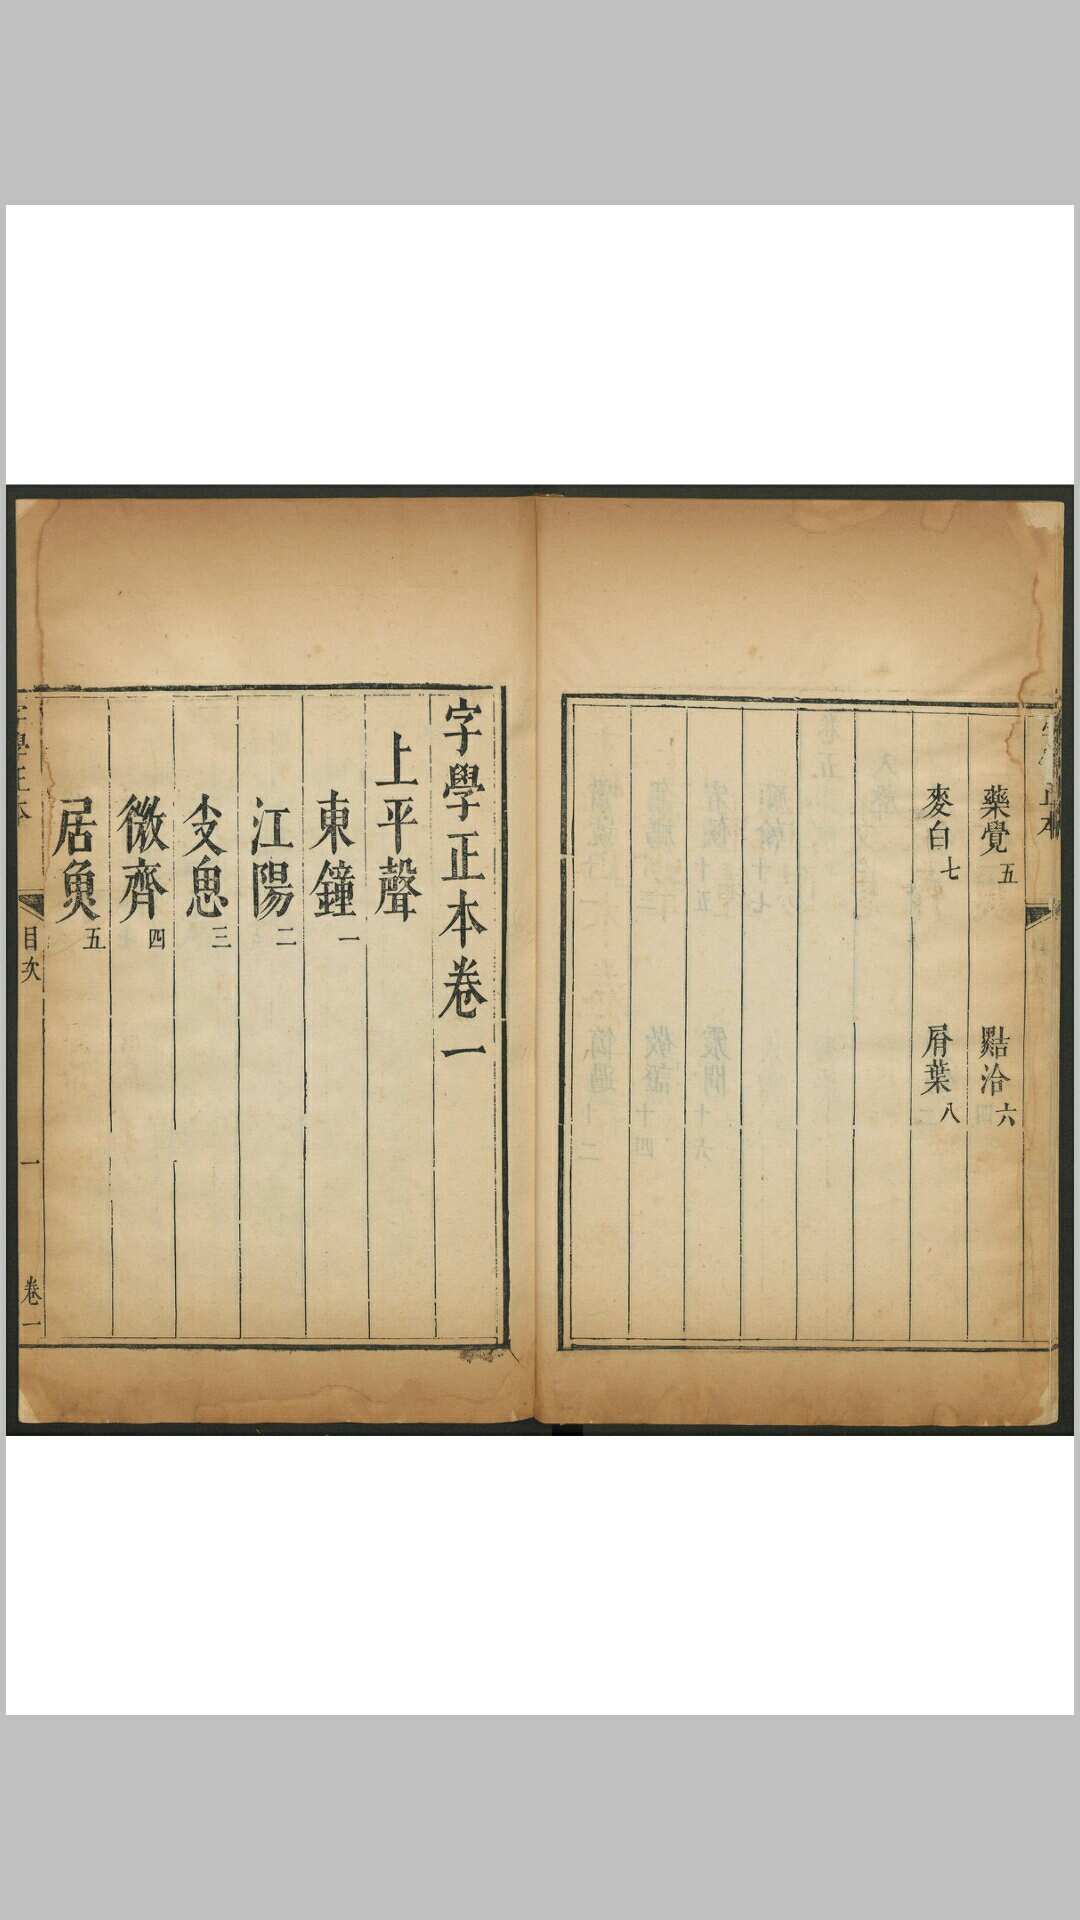 藥覺五
黠洽六
麥白七
屑葉八
字學正本卷一
上平聲
東鐘一
江陽二
支思三
微齊四
居魚五
目次
一
卷一